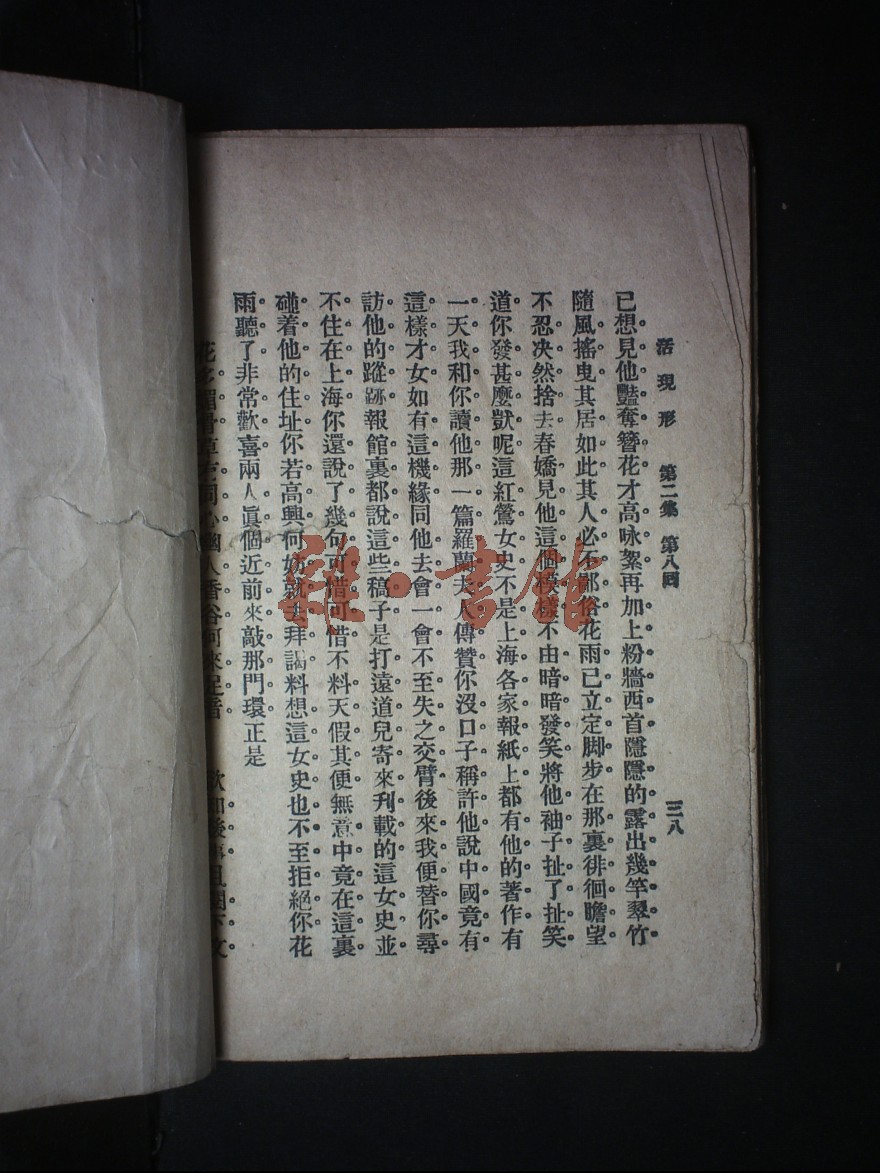 活現形 第二集 第八回 三八
已想見他豔奪簪花才高咏絮再加上粉牆西首隱隱的露出幾竿翠竹
隨風搖曳其居如此其人必不鄙俗花雨已立定脚步在那裏徘徊瞻望
不忍决然捨去春嬌見他這個模樣不由暗暗發笑將他袖子扯了扯笑
道你發甚麽獃呢這紅鶯女史不是上海各家報紙上都有他的著作有
一天我和你讀他那一篇羅蘭夫人傳贊你沒口子稱許他說中國竟有
這樣才女如有這機緣同他去會一會不至失之交臂後來我便替你尋
訪他的蹤跡報館裏都說這些稿子是打遠道兒寄來刋載的這女史並
不住在上海你還說了幾句可惜可惜不料天假其便無意中竟在這裏
碰着他的住址你若高興何妨就去拜謁料想這女史也不至拒絕你花
雨聽了非常歡喜兩人眞個近前來敲那門環正是
雜·書館